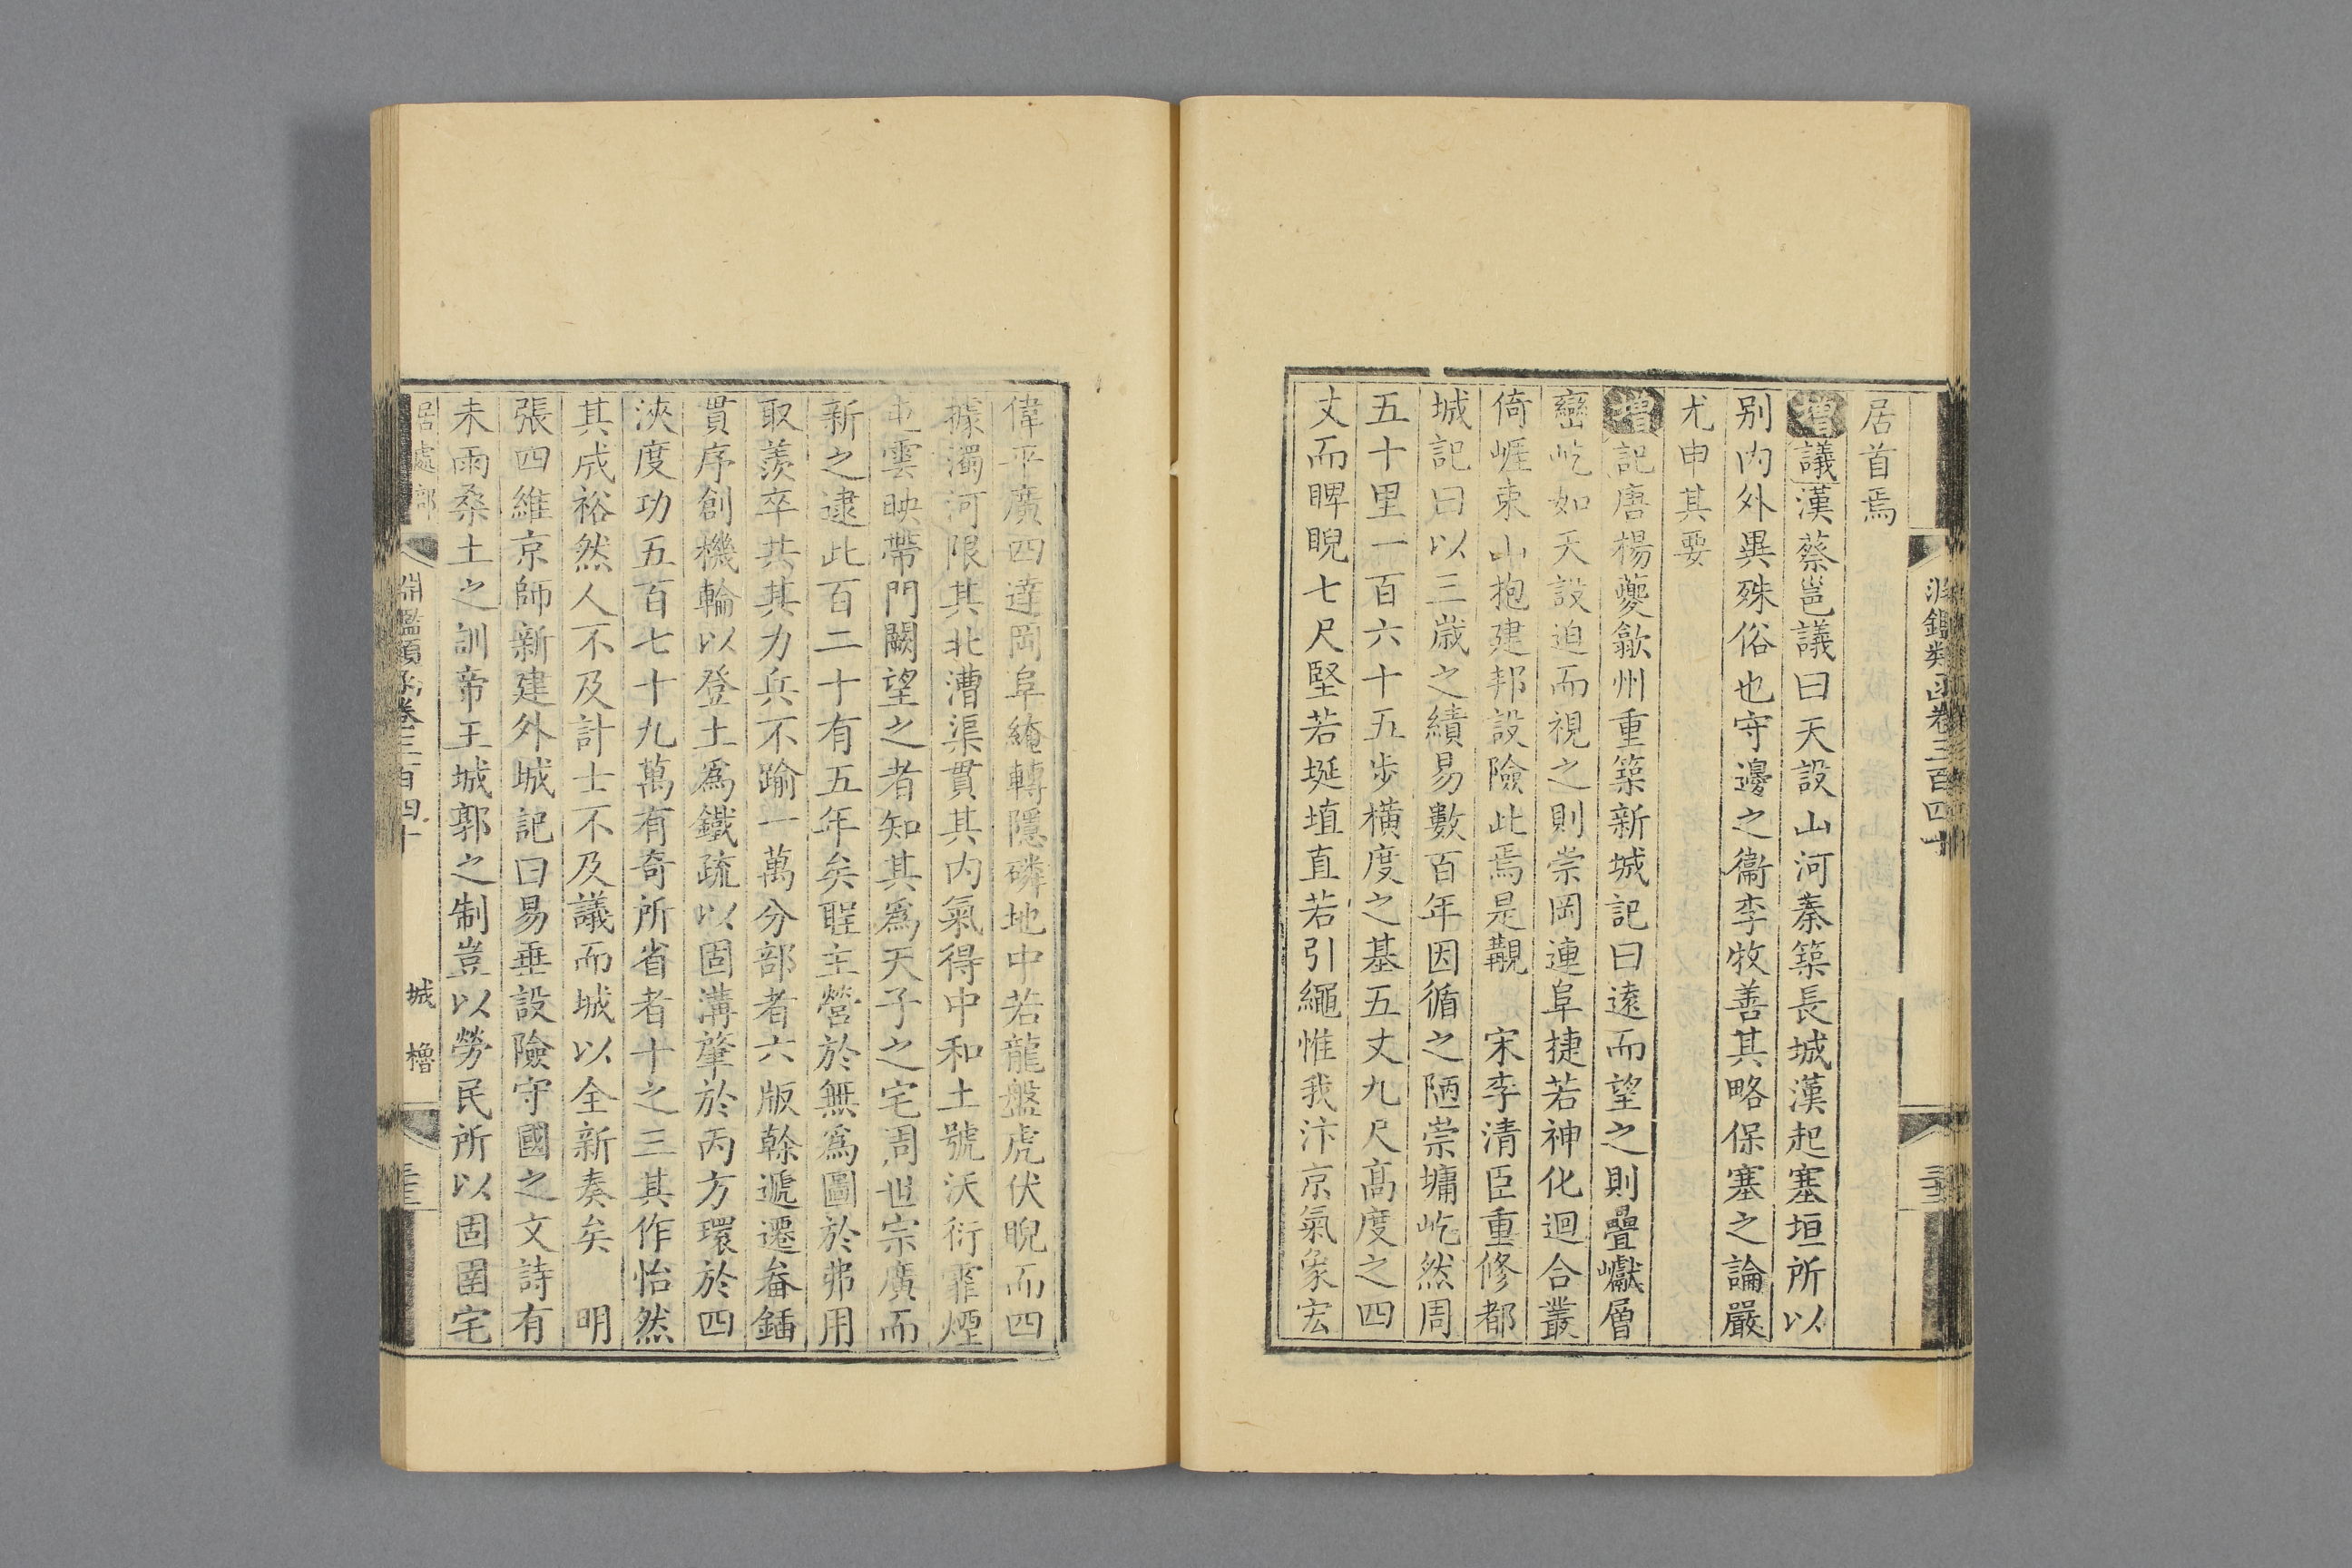 淵鑑類函卷三百四十
居首焉
增議漢蔡邕議曰天設山河秦築長城漢起塞垣所以
别内外異殊俗也守邊之衞李牧善其略保塞之論嚴
尤申其要
增記唐楊夔歙州重築新城記曰遠而望之則疊巘層
巒屹如天設迫而視之則崇岡連阜捷若神化迴合叢
倚崕束山抱建邦設險此焉是覯　宋李清臣重修都
城記曰以三歲之績易數百年因循之陋崇墉屹然周
五十里一百六十五步橫度之基五丈九尺高度之四
丈而睥睨七尺堅若埏埴直若引繩惟我汴京氣象宏
偉平廣四達岡阜綣轉隱磷地中若龍盤虎伏睨而四
據濁河限其北漕渠貫其内氣得中和土號沃衍霏煙
屯雲映帶門闕望之者知其爲天子之宅周世宗廣而
新之逮此百二十有五年矣聖主營於無爲圖於弗用
取羨卒共其力兵不踰一萬分部者六版榦遞遷畚鍤
貫序創機輪以登土爲鐵疏以固溝肇於丙方環於四
浹度功五百七十九萬有奇所省者十之三其作怡然
其成裕然人不及計士不及議而城以全新奏矣　明
張四維京師新建外城記曰易垂設險守國之文詩有
未雨桑土之訓帝王城郭之制豈以勞民所以固圉宅
居處部
淵鑑類函卷三百四十
城　櫓